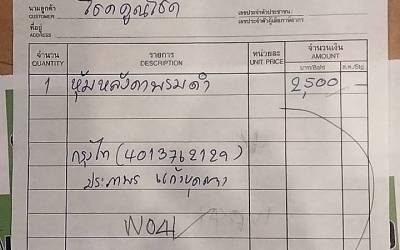 นามลูกค้า CUSTOMER โชคคูณโชค
เลขประจำตัวประชาชน
เลขประจำตัวผู้เสียภาษีอากร
ที่อยู่ ADDRESS
จำนวน QUANTITY รายการ DESCRIPTION หน่วยละ UNIT PRICE จำนวนเงิน AMOUNT
บาท/Baht ส.ต./Stg
1 หุ้มหลังคาพรมดำ 2,500 -
กรุงไทย (4013762129)
ประภาพร